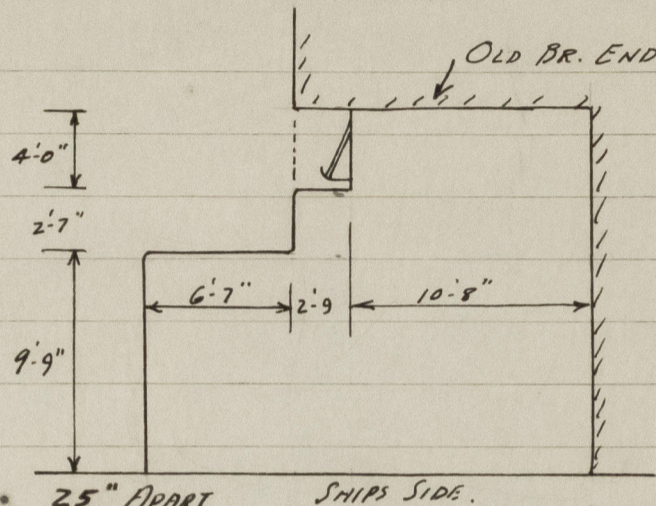 OLD BR. END
4'-0"
2'-7"
6'-7" 2'-9 10'-8"
9'-9"
25" APART SHIPS SIDE.